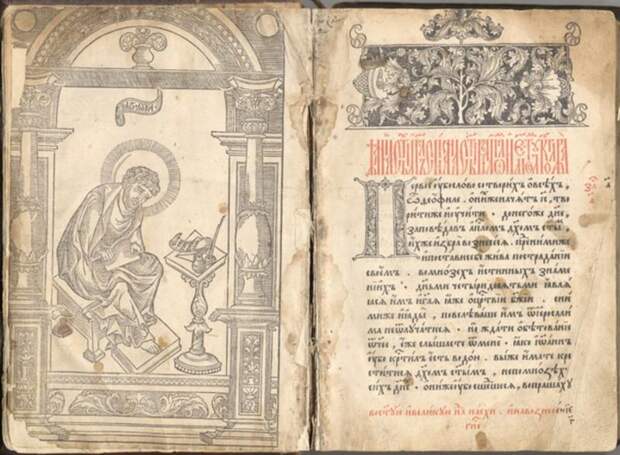 Первое ѹбо слово сотворихъ ѡ всѣхъ,
ѽ ѳеофиле. ѡ нихже начатъ і҃с, тво
рити же и ѹчити. до негоже дн҃е,
заповѣдавъ апⷭ҇ломъ дх҃омъ ст҃ы
ихже избра вознесесѧ. пред нимиже
и постави себе жива по страданїи
своемъ. во мнозѣхъ истинныхъ знаме
нїихъ. дньми четыридесѧтьми ꙗвлѧ
ѧсѧ имъ и гл҃ѧ ꙗже ѡ црⷭ҇твїи бж҃їи. с ни
миже и ꙗды, повелѣваше имъ ѿ ерⷭ҇али
ма не ѿлꙋчатисѧ. но ждати обѣтованїе
ѿч҃ее, еже слышасте ѿ мене. ꙗко іѡаннъ
ѹбо крⷭ҇тилъ есть водою. вы же имате кре
ститисѧ дх҃омъ ст҃ымъ, не по мнозѣхъ
сихъ дн҃ехъ. они же ѹбо сшедшесѧ, вопрашахꙋ